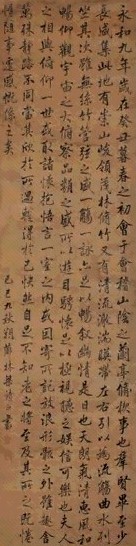 永和九年歲在癸丑暮春之初會于會稽山陰之蘭亭脩禊事也群賢畢至少
長咸集此地有崇山峻領茂林脩竹又有清流激湍暎帶左右引以為流觴曲水列
坐其次雖無絲竹管弦之盛一觴一詠亦足以暢敘幽情是日也天朗氣清惠風和
暢仰觀宇宙之大俯察品類之盛所以遊目騁懷足以極視聽之娛信可樂也夫人
之相與俯仰一世或取諸懷抱悟言一室之內或因寄所託放浪形骸之外雖趣舍
萬殊靜躁不同當其欣於所遇暫得於己快然自足不知老之將至及其所之既惓
情隨事遷感慨係之矣
己丑秋朔